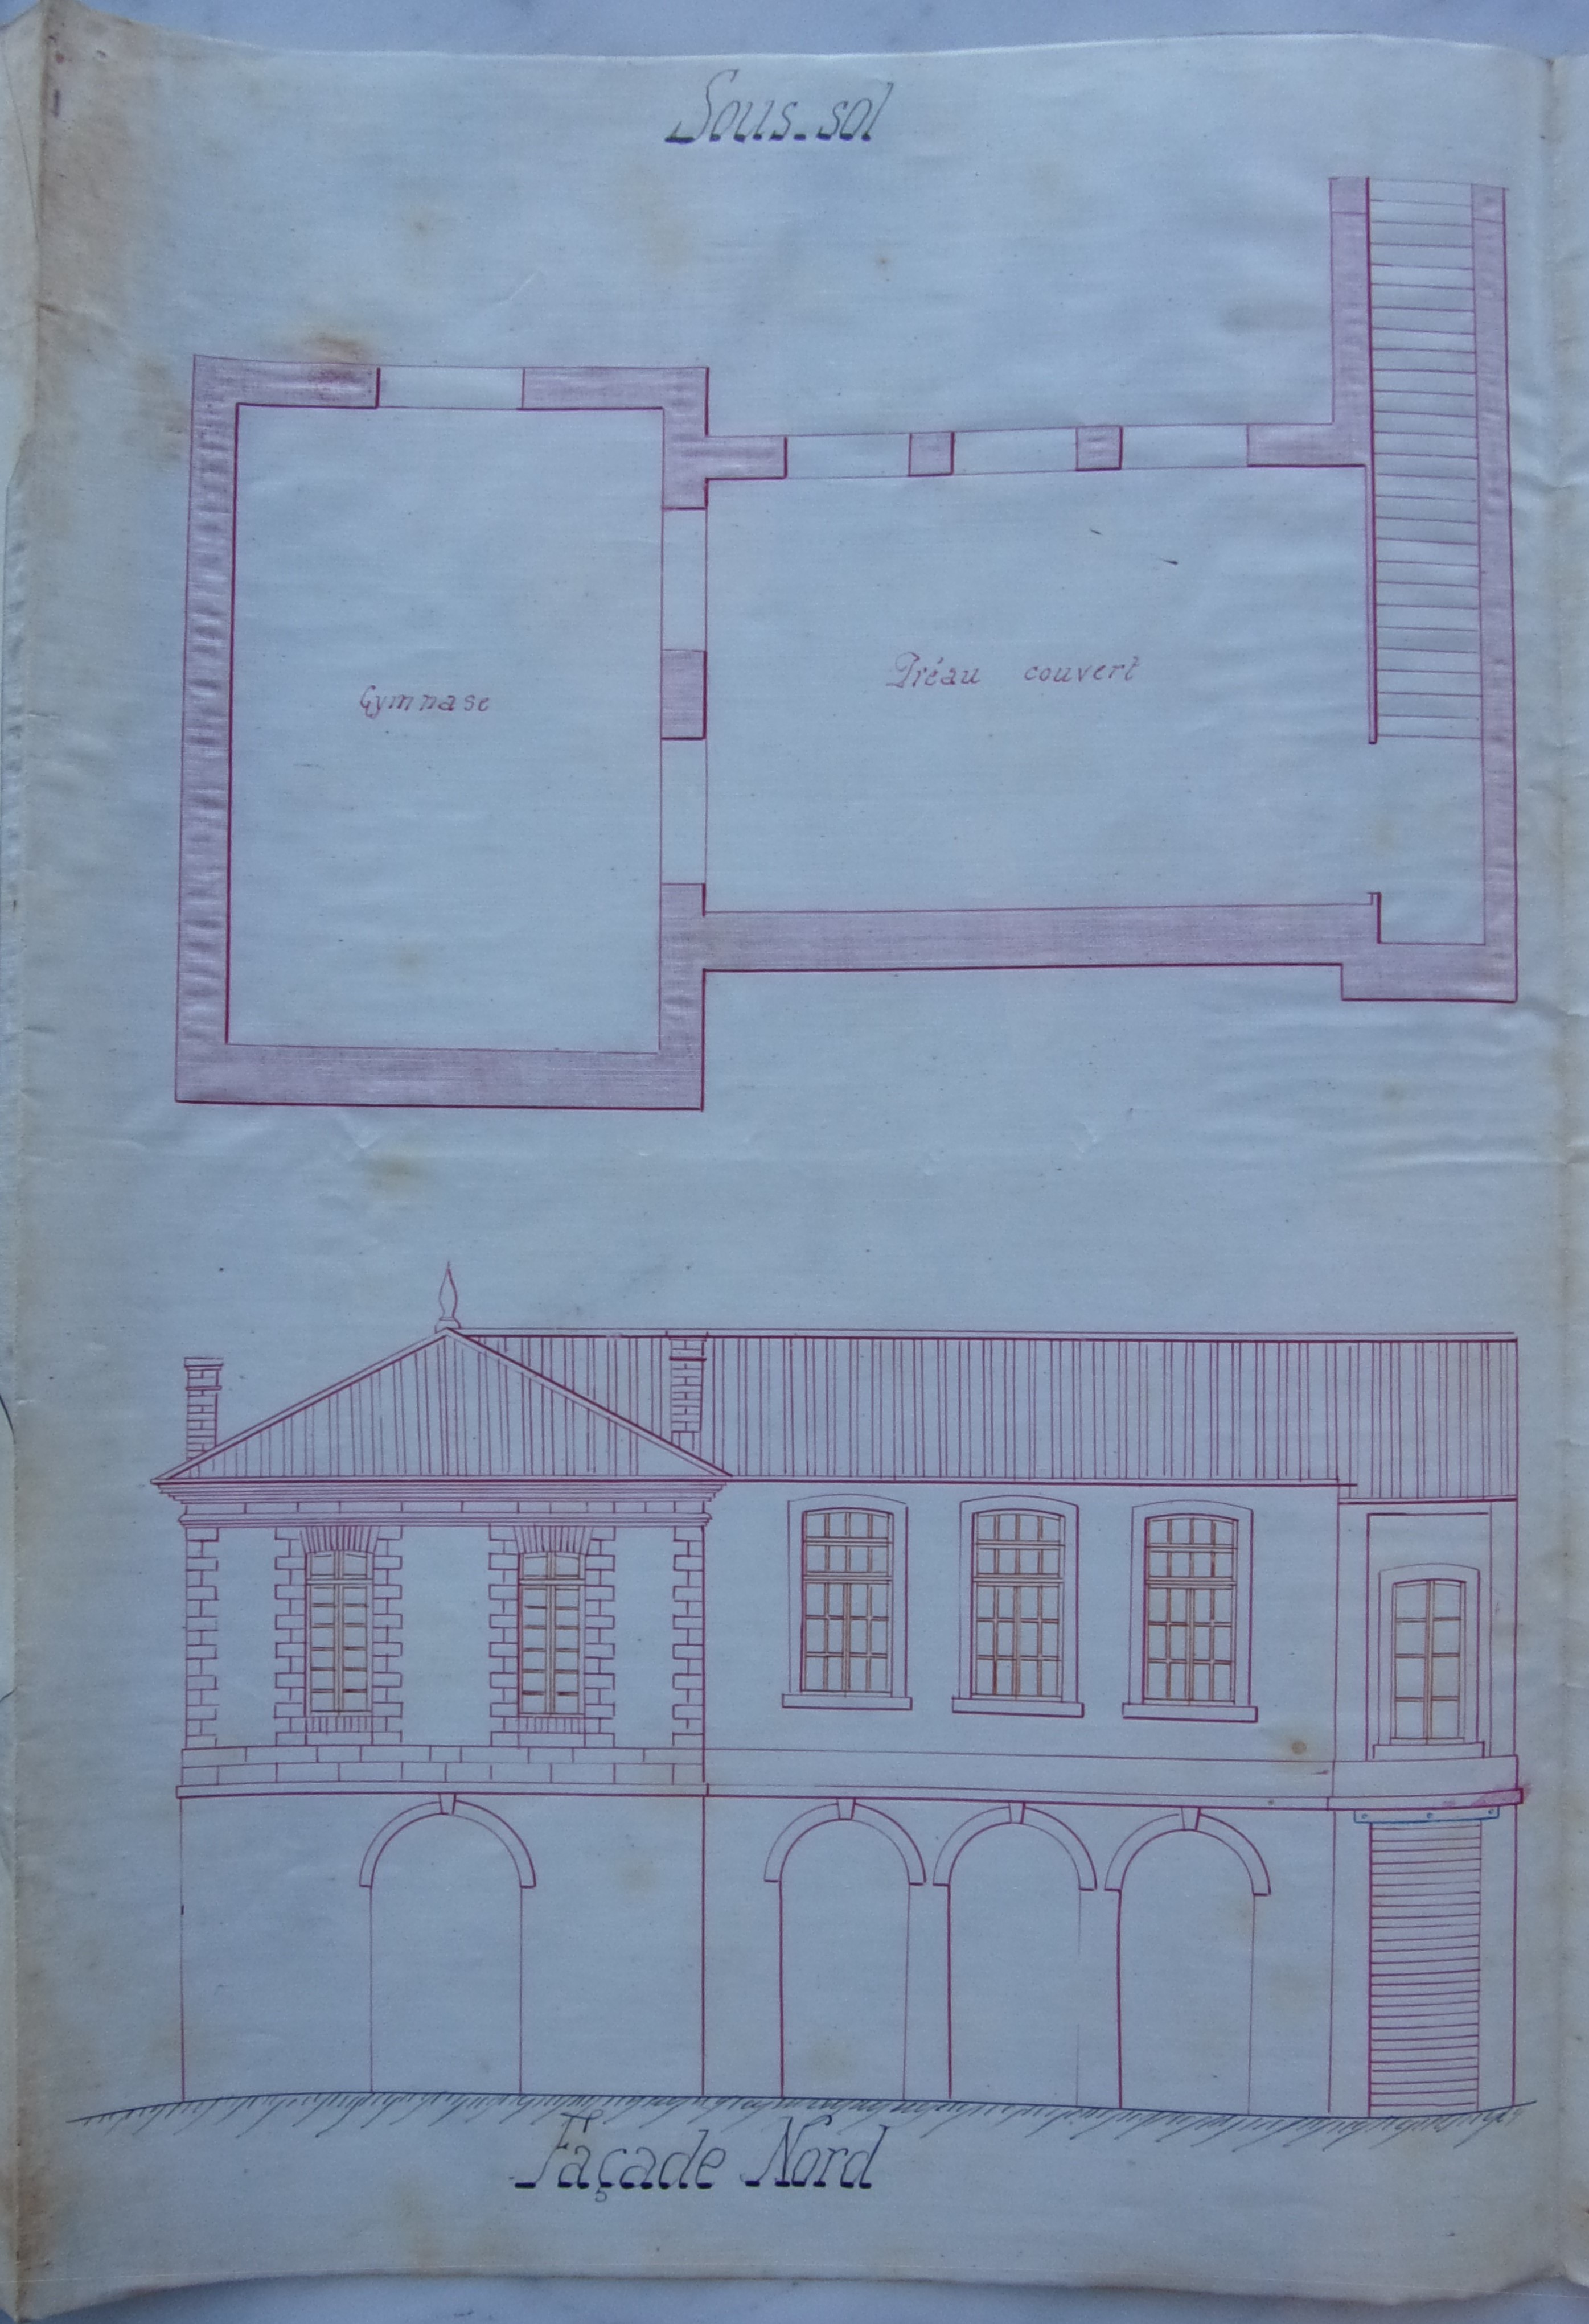 Sous-sol
Gymnase
Préau couvert
Façade Nord